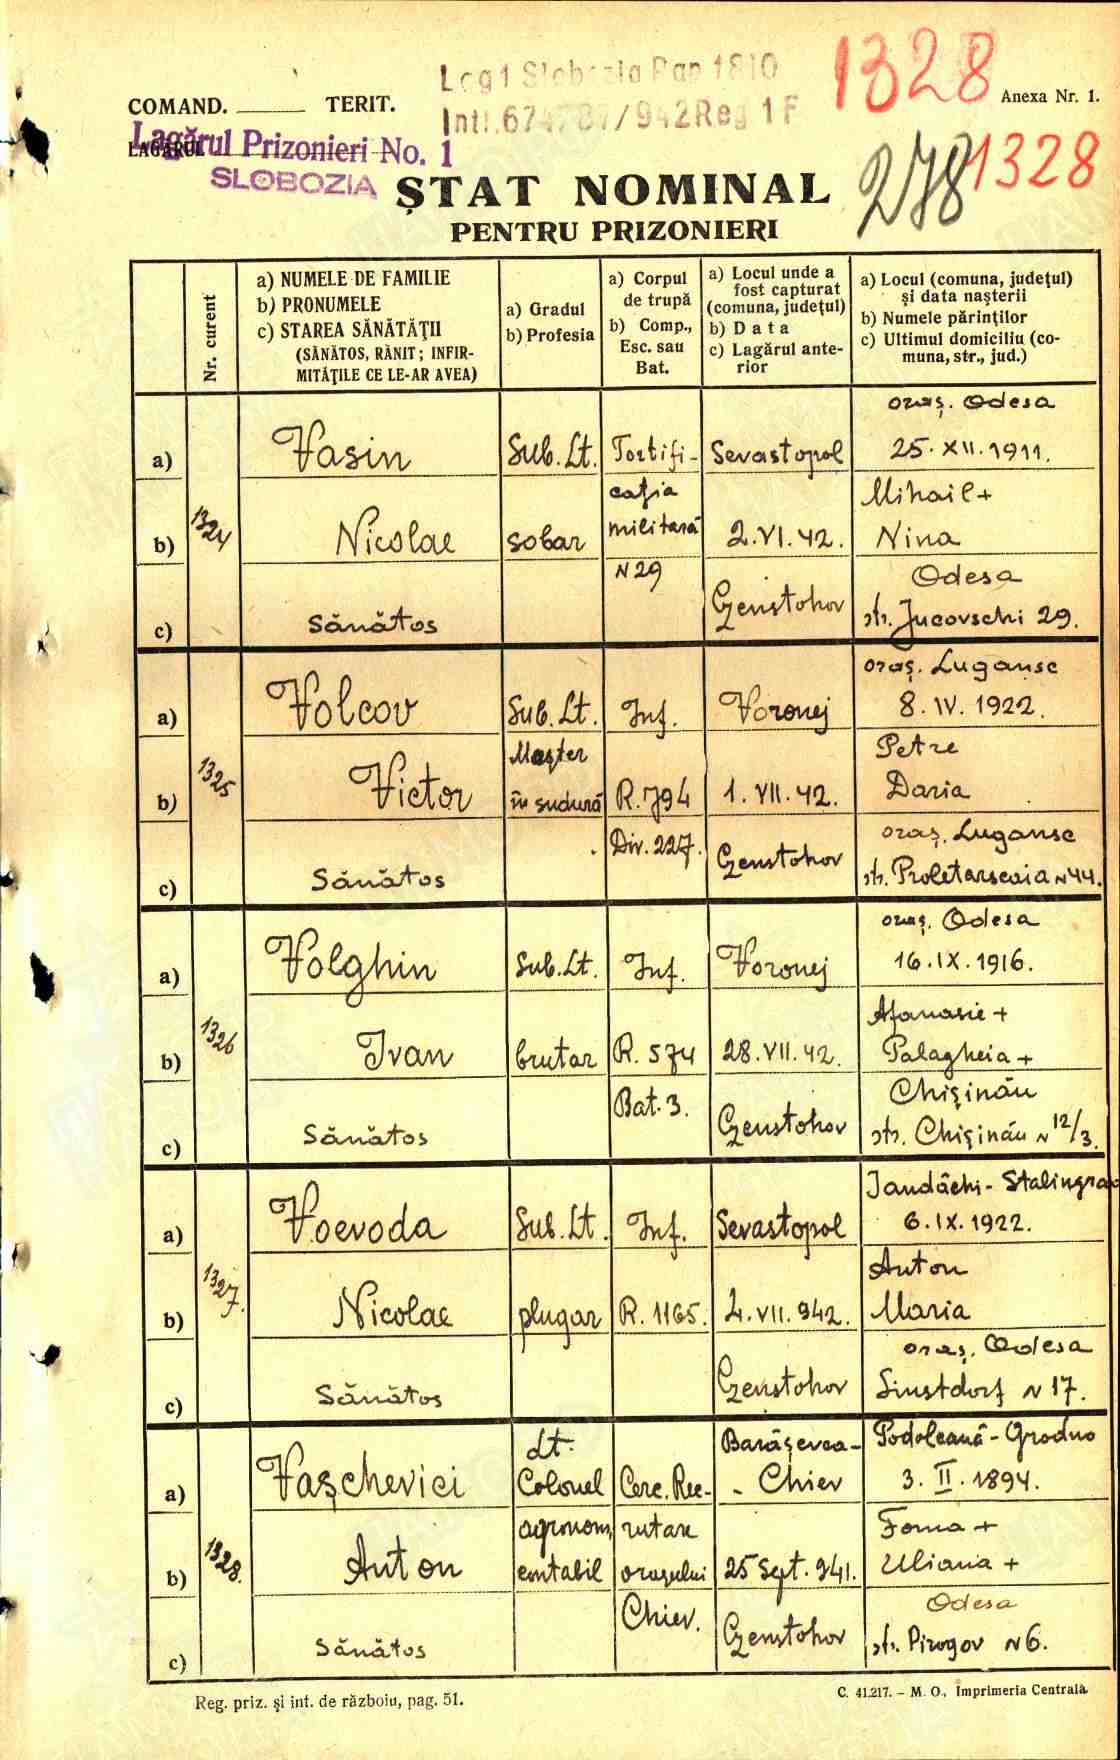 Lag 1 Slobozia Pap 1810
Intl. 674787/942 Reg 1 F
1328
COMAND. TERIT.
Anexa Nr. 1.
LAGĂRUL
Lagărul Prizonieri No. 1
SLOBOZIA
278
1328
ŞTAT NOMINAL
PENTRU PRIZONIERI
Nr. curent
a) NUMELE DE FAMILIE
b) PRONUMELE
c) STAREA SĂNĂTĂŢII
(SĂNĂTOS, RĂNIT; INFIR-
MITĂŢILE CE LE-AR AVEA)
a) Gradul
b) Profesia
a) Corpul
de trupă
b) Comp.,
Esc. sau
Bat.
a) Locul unde a
fost capturat
(comuna, judeţul)
b) Data
c) Lagărul ante-
rior
a) Locul (comuna, judeţul)
şi data naşterii
b) Numele părinţilor
c) Ultimul domiciliu (co-
muna, str., jud.)
1324
a)
Vasin
Sub. Lt.
Fortifi-
Sevastopol
oraş. Odesa
25. XII. 1911.
b)
Nicolae
sobar
caţia
militară
2. VI. 42.
Mihail +
Nina
c)
Sănătos
N 29
Czenstohov
Odesa
str. Jucovschi 29.
1325
a)
Volcov
Sub. Lt.
Inf.
Voronej
oraş. Lugansc
8. IV. 1922.
b)
Victor
Maşter
în sudură
R. 794
1. VII. 42.
Petre
Daria
c)
Sănătos
Div. 227.
Czenstohov
oraş. Lugansc
str. Proletarscaia N 44.
1326
a)
Volghin
Sub. Lt.
Inf.
Voronej
oraş. Odesa
16. IX. 1916.
b)
Ivan
brutar
R. 574
28. VII. 42.
Afanasie +
Palagheia +
c)
Sănătos
Bat. 3.
Czenstohov
Chişinău
str. Chişinău N 12/3.
1327.
a)
Voevoda
Sub. Lt.
Inf.
Sevastopol
Jandâchi - Stalingrad
6. IX. 1922.
b)
Nicolae
plugar
R. 1165.
4. VII. 942.
Anton
Maria
c)
Sănătos
Czenstohov
oraş. Odesa
Liustdorf N 17.
1328.
a)
Vaşchevici
Lt.
Colonel
Cerc. Rec-
Barâşevca-
- Chiev
Podoleană - Grodno
3. II. 1894.
b)
Anton
agronom,
contabil
rutare
oraşului
25 Sept. 941.
Foma +
Uliana +
c)
Sănătos
Chiev.
Czenstohov
Odesa
str. Pirogov N 6.
Reg. priz. şi int. de războiu, pag. 51.
C. 41.217. - M. O., Imprimeria Centrală.